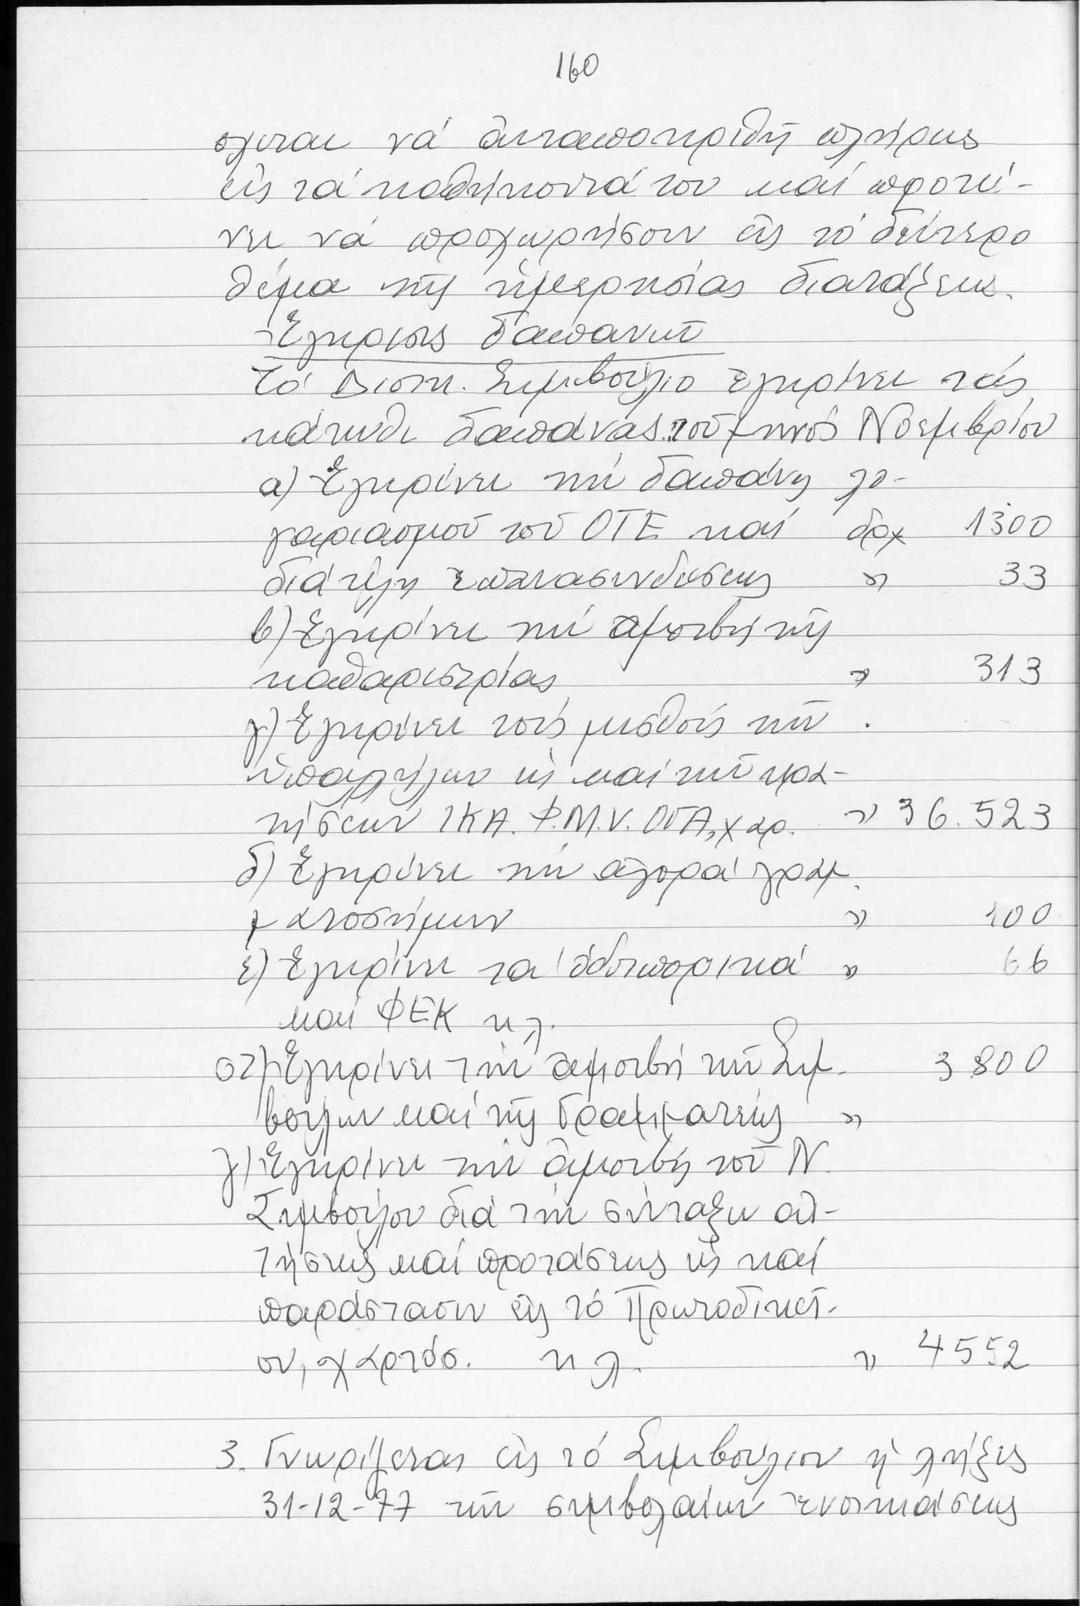 160
σχεται νά ἀνταποκριθῆ πλήρως
εἰς τά καθήκοντά του καί προτεί-
νει νά προχωρήσουν εἰς τό δεύτερο
θέμα τῆς ἡμερησίας διατάξεως.
Ἔγκρισις δαπανῶν
Τό Διοικ. Συμβούλιο ἐγκρίνει τάς
κάτωθι δαπάνας τοῦ μηνός Νοεμβρίου
α) Ἐγκρίνει τήν δαπάνη λο-
γαριασμοῦ τοῦ ΟΤΕ καί δρχ 1300
διά τέλη ἐπανασυνδέσεως " 33
β) Ἐγκρίνει τήν ἀμοιβή τῆς
καθαριστρίας " 313
γ) Ἐγκρίνει τούς μισθούς τῶν
ὑπαλλήλων ὡς καί τῶν κρα-
τήσεων ΙΚΑ. Φ.Μ.Υ. ΟΓΑ, χαρ. " 36.523
δ) Ἐγκρίνει τήν ἀγορά γραμ
ματοσήμων " 100
ε) Ἐγκρίνει τα ὁδοιπορικά " 66
καί ΦΕΚ κλ.
στ) Ἐγκρίνει τήν ἀμοιβή τῶν Συμ- 3800
βούλων καί τῆς Γραμματέως "
ζ) Ἐγκρίνει τήν ἀμοιβή τοῦ Ν.
Συμβούλου διά τήν σύνταξιν αἰ-
τήσεως καί προτάσεως ὡς καί
παράστασιν εἰς τό Πρωτοδικεῖ-
ον, χαρτόσ. κλ. " 4552
3. Γνωρίζεται εἰς τό Συμβούλιον ἡ λῆξις
31-12-77 τῶν συμβολαίων ἐνοικιάσεως